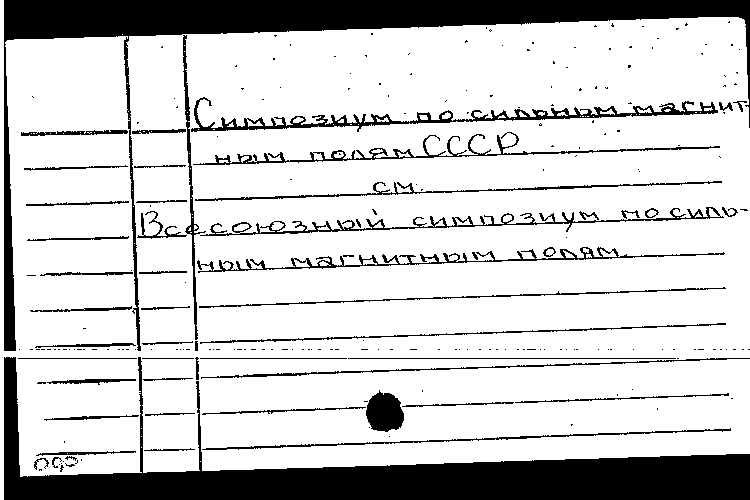 Симпозиум по сильным магнит-
ным полям СССР.
см.
Всесоюзный симпозиум по силь-
ным магнитным полям.